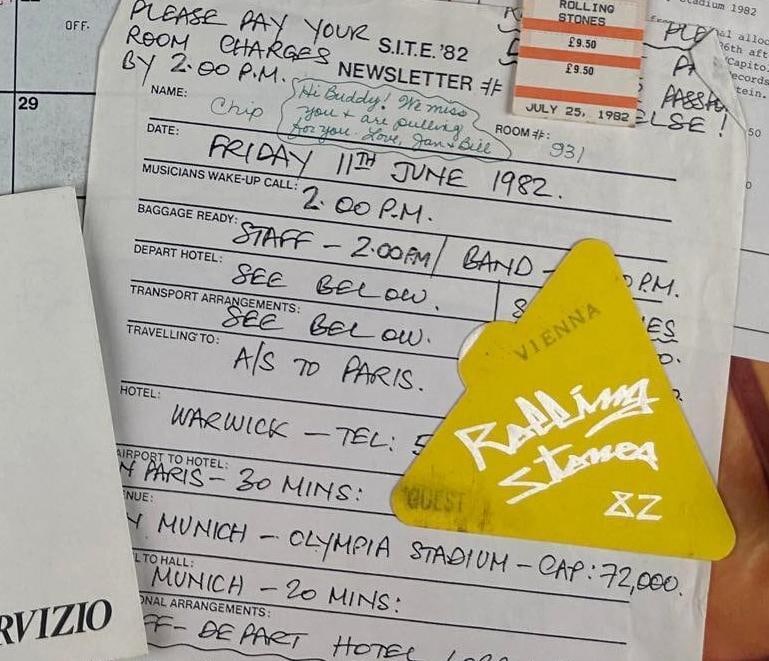 PLEASE PAY YOUR
ROOM CHARGES
BY 2.00 P.M.
S.I.T.E.'82
NEWSLETTER #
OFF.
29
ROLLING
STONES
£9.50
£9.50
JULY 25, 1982
ELSE !
stadium 1982
NAME: Chip
Hi Buddy! We miss
you + are pulling
for you. Love, Jan + Bill
ROOM #: 931
DATE: FRIDAY 11TH JUNE 1982.
MUSICIANS WAKE-UP CALL: 2.00 P.M.
BAGGAGE READY: STAFF - 2.00PM / BAND - P.M.
DEPART HOTEL: SEE BELOW.
TRANSPORT ARRANGEMENTS: SEE BELOW.
TRAVELLING TO: A/S TO PARIS.
HOTEL: WARWICK - TEL: 5
AIRPORT TO HOTEL:
N PARIS - 30 MINS:
NUE:
MUNICH - OLYMPIA STADIUM - CAP: 72,000.
L TO HALL:
MUNICH - 20 MINS:
ONAL ARRANGEMENTS:
FF - DEPART HOTEL
VIENNA
Rolling
Stones
82
GUEST
RVIZIO